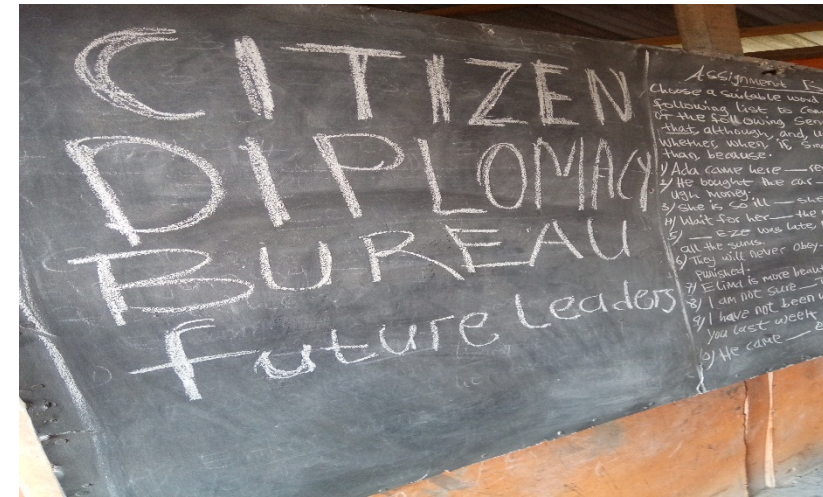 CITIZEN
DIPLOMACY
BUREAU
future Leaders
Assignment
Choose a suitable word
following list to
of the following
that, although, and,
whether, when, if,
than because.
1) Ada came here —
2) He bought the car —
ugh money.
3) She is so ill — she
4) Wait for her — the
5) — Eze was late,
all the sums.
6) They will never obey —
punished.
7) is more
8) I am not sure —
9) I have not been
you last week
10) He came —